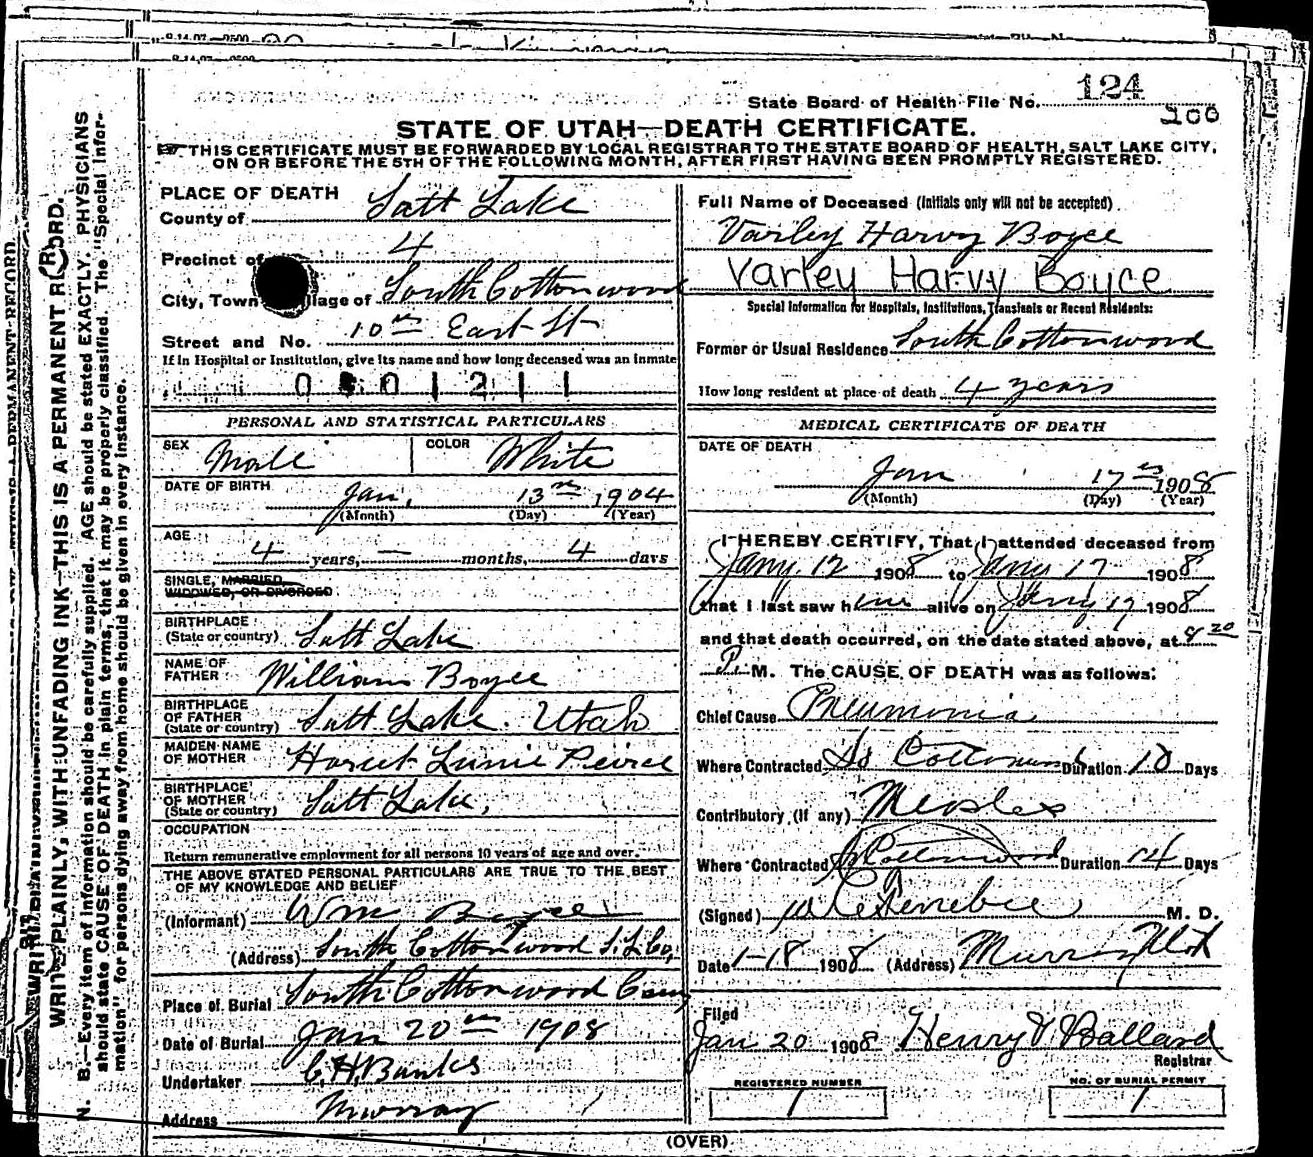 State Board of Health File No. 124
200
STATE OF UTAH—DEATH CERTIFICATE.
THIS CERTIFICATE MUST BE FORWARDED BY LOCAL REGISTRAR TO THE STATE BOARD OF HEALTH, SALT LAKE CITY,
ON OR BEFORE THE 5TH OF THE FOLLOWING MONTH, AFTER FIRST HAVING BEEN PROMPTLY REGISTERED.
WRITE PLAINLY, WITH UNFADING INK—THIS IS A PERMANENT RECORD.
N. B.—Every item of information should be carefully supplied. AGE should be stated EXACTLY. PHYSICIANS
should state CAUSE OF DEATH in plain terms, that it may be properly classified. The "Special Infor-
mation" for persons dying away from home should be given in every instance.
PLACE OF DEATH
County of Salt Lake
Precinct of 4
City, Town Village of South Cottonwood
Street and No. 10th East St
If in Hospital or Institution, give its name and how long deceased was an inmate
0 0 1 2 1 1
PERSONAL AND STATISTICAL PARTICULARS
SEX Male COLOR White
DATE OF BIRTH
Jan, 13th 1904
(Month) (Day) (Year)
AGE
4 years, — months, 4 days
SINGLE, MARRIED,
WIDOWED, OR DIVORCED
BIRTHPLACE
(State or country) Salt Lake
NAME OF
FATHER William Boyce
BIRTHPLACE
OF FATHER
(State or country) Salt Lake. Utah
MAIDEN NAME
OF MOTHER Peirce
BIRTHPLACE
OF MOTHER
(State or country) Salt Lake,
OCCUPATION
Return remunerative employment for all persons 10 years of age and over.
THE ABOVE STATED PERSONAL PARTICULARS ARE TRUE TO THE BEST
OF MY KNOWLEDGE AND BELIEF
(Informant) Wm Boyce
(Address) South Cottonwood S. L. Co,
Place of Burial South Cottonwood Cem
Date of Burial Jan 20th 1908
Undertaker C. H. Banks
Address Murray
Full Name of Deceased (Initials only will not be accepted)
Varley Harvy Boyce
Varley Harvy Boyce
Special Information for Hospitals, Institutions, Transients or Recent Residents:
Former or Usual Residence South Cottonwood
How long resident at place of death 4 years
MEDICAL CERTIFICATE OF DEATH
DATE OF DEATH
Jan 17th 1908
(Month) (Day) (Year)
I HEREBY CERTIFY, That I attended deceased from
Jany. 12 1908 to Jany 17 1908
that I last saw him alive on Jany 17 1908
and that death occurred, on the date stated above, at
P. M. The CAUSE OF DEATH was as follows:
Chief Cause Pneumonia
Where Contracted So Cottonwood Duration 10 Days
Contributory (if any) Measles
Where Contracted So Cottonwood Duration 14 Days
(Signed) M. D.
Date 1-18 1908 (Address) Murray Utah
Filed
Jan 20 1908 Henry Ballard
Registrar
REGISTERED NUMBER NO. OF BURIAL PERMIT
1 1
(OVER)